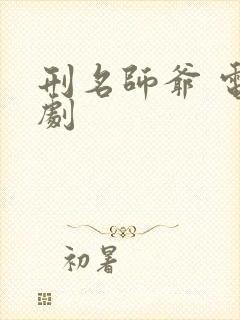 刑名師爺 電
劇
初暑